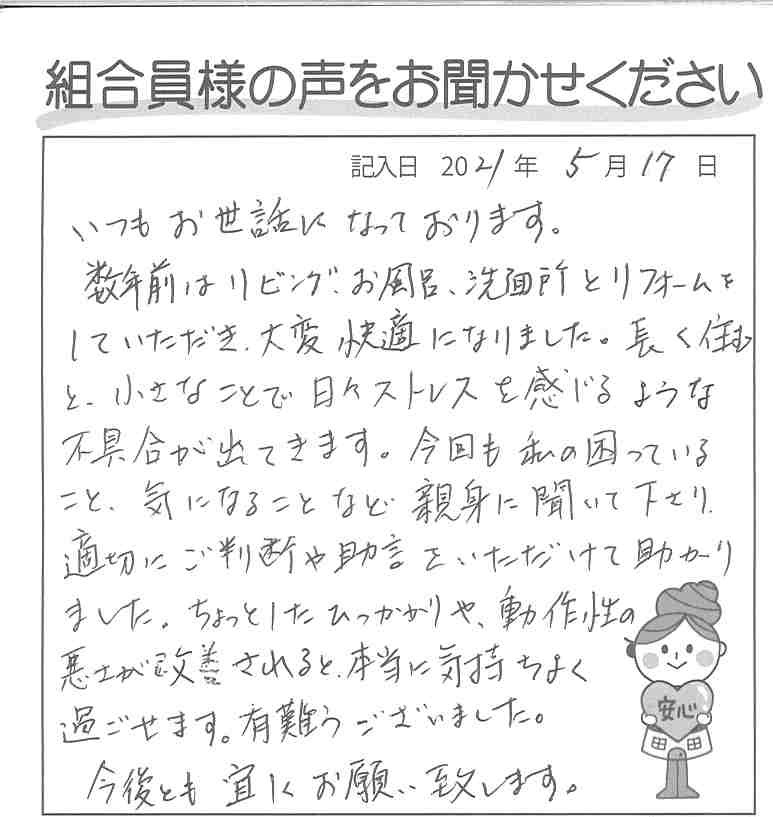 組合員様の声をお聞かせください
記入日 2021年 5月17日
いつもお世話になっております。
数年前はリビング、お風呂、洗面所とリフォームを
していただき、大変快適になりました。長く住む
と、小さなことで日々ストレスを感じるような
不具合が出てきます。今回も私の困っている
こと、気になることなど親身に聞いて下さり、
適切にご判断や助言をいただけて助かり
ました。ちょっとしたひっかかりや、動作性の
悪さが改善されると、本当に気持ちよく
過ごせます。有難うございました。
今後とも宜しくお願い致します。
安心